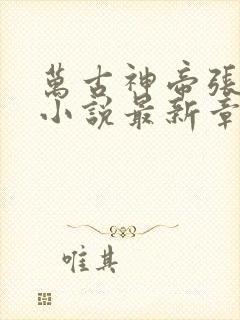 萬古神帝張
小説最新章
唯其